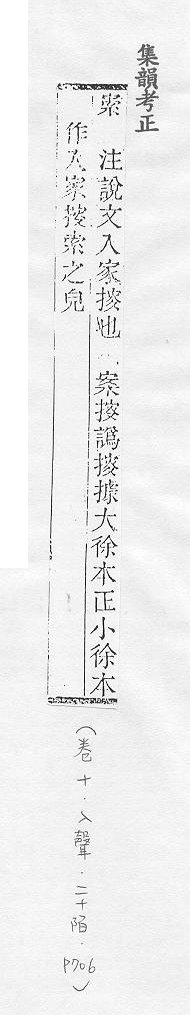 集韻考正
索 注說文入家搜也 案搜譌搜據大徐本正小徐本
作入家搜索之皃
(卷十.入聲.二十陌.P706)